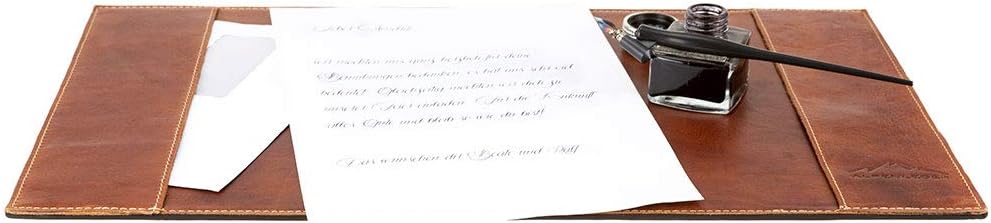 wir möchten uns ganz herzlich für deine
Bemühungen bedanken, es hat uns sehr viel
bedeutet. Gleichzeitig möchten wir dich zu
unserer Feier einladen. Für die Zukunft
alles Gute und bleib so wie du bist!
Das wünschen dir Beate und Rolf